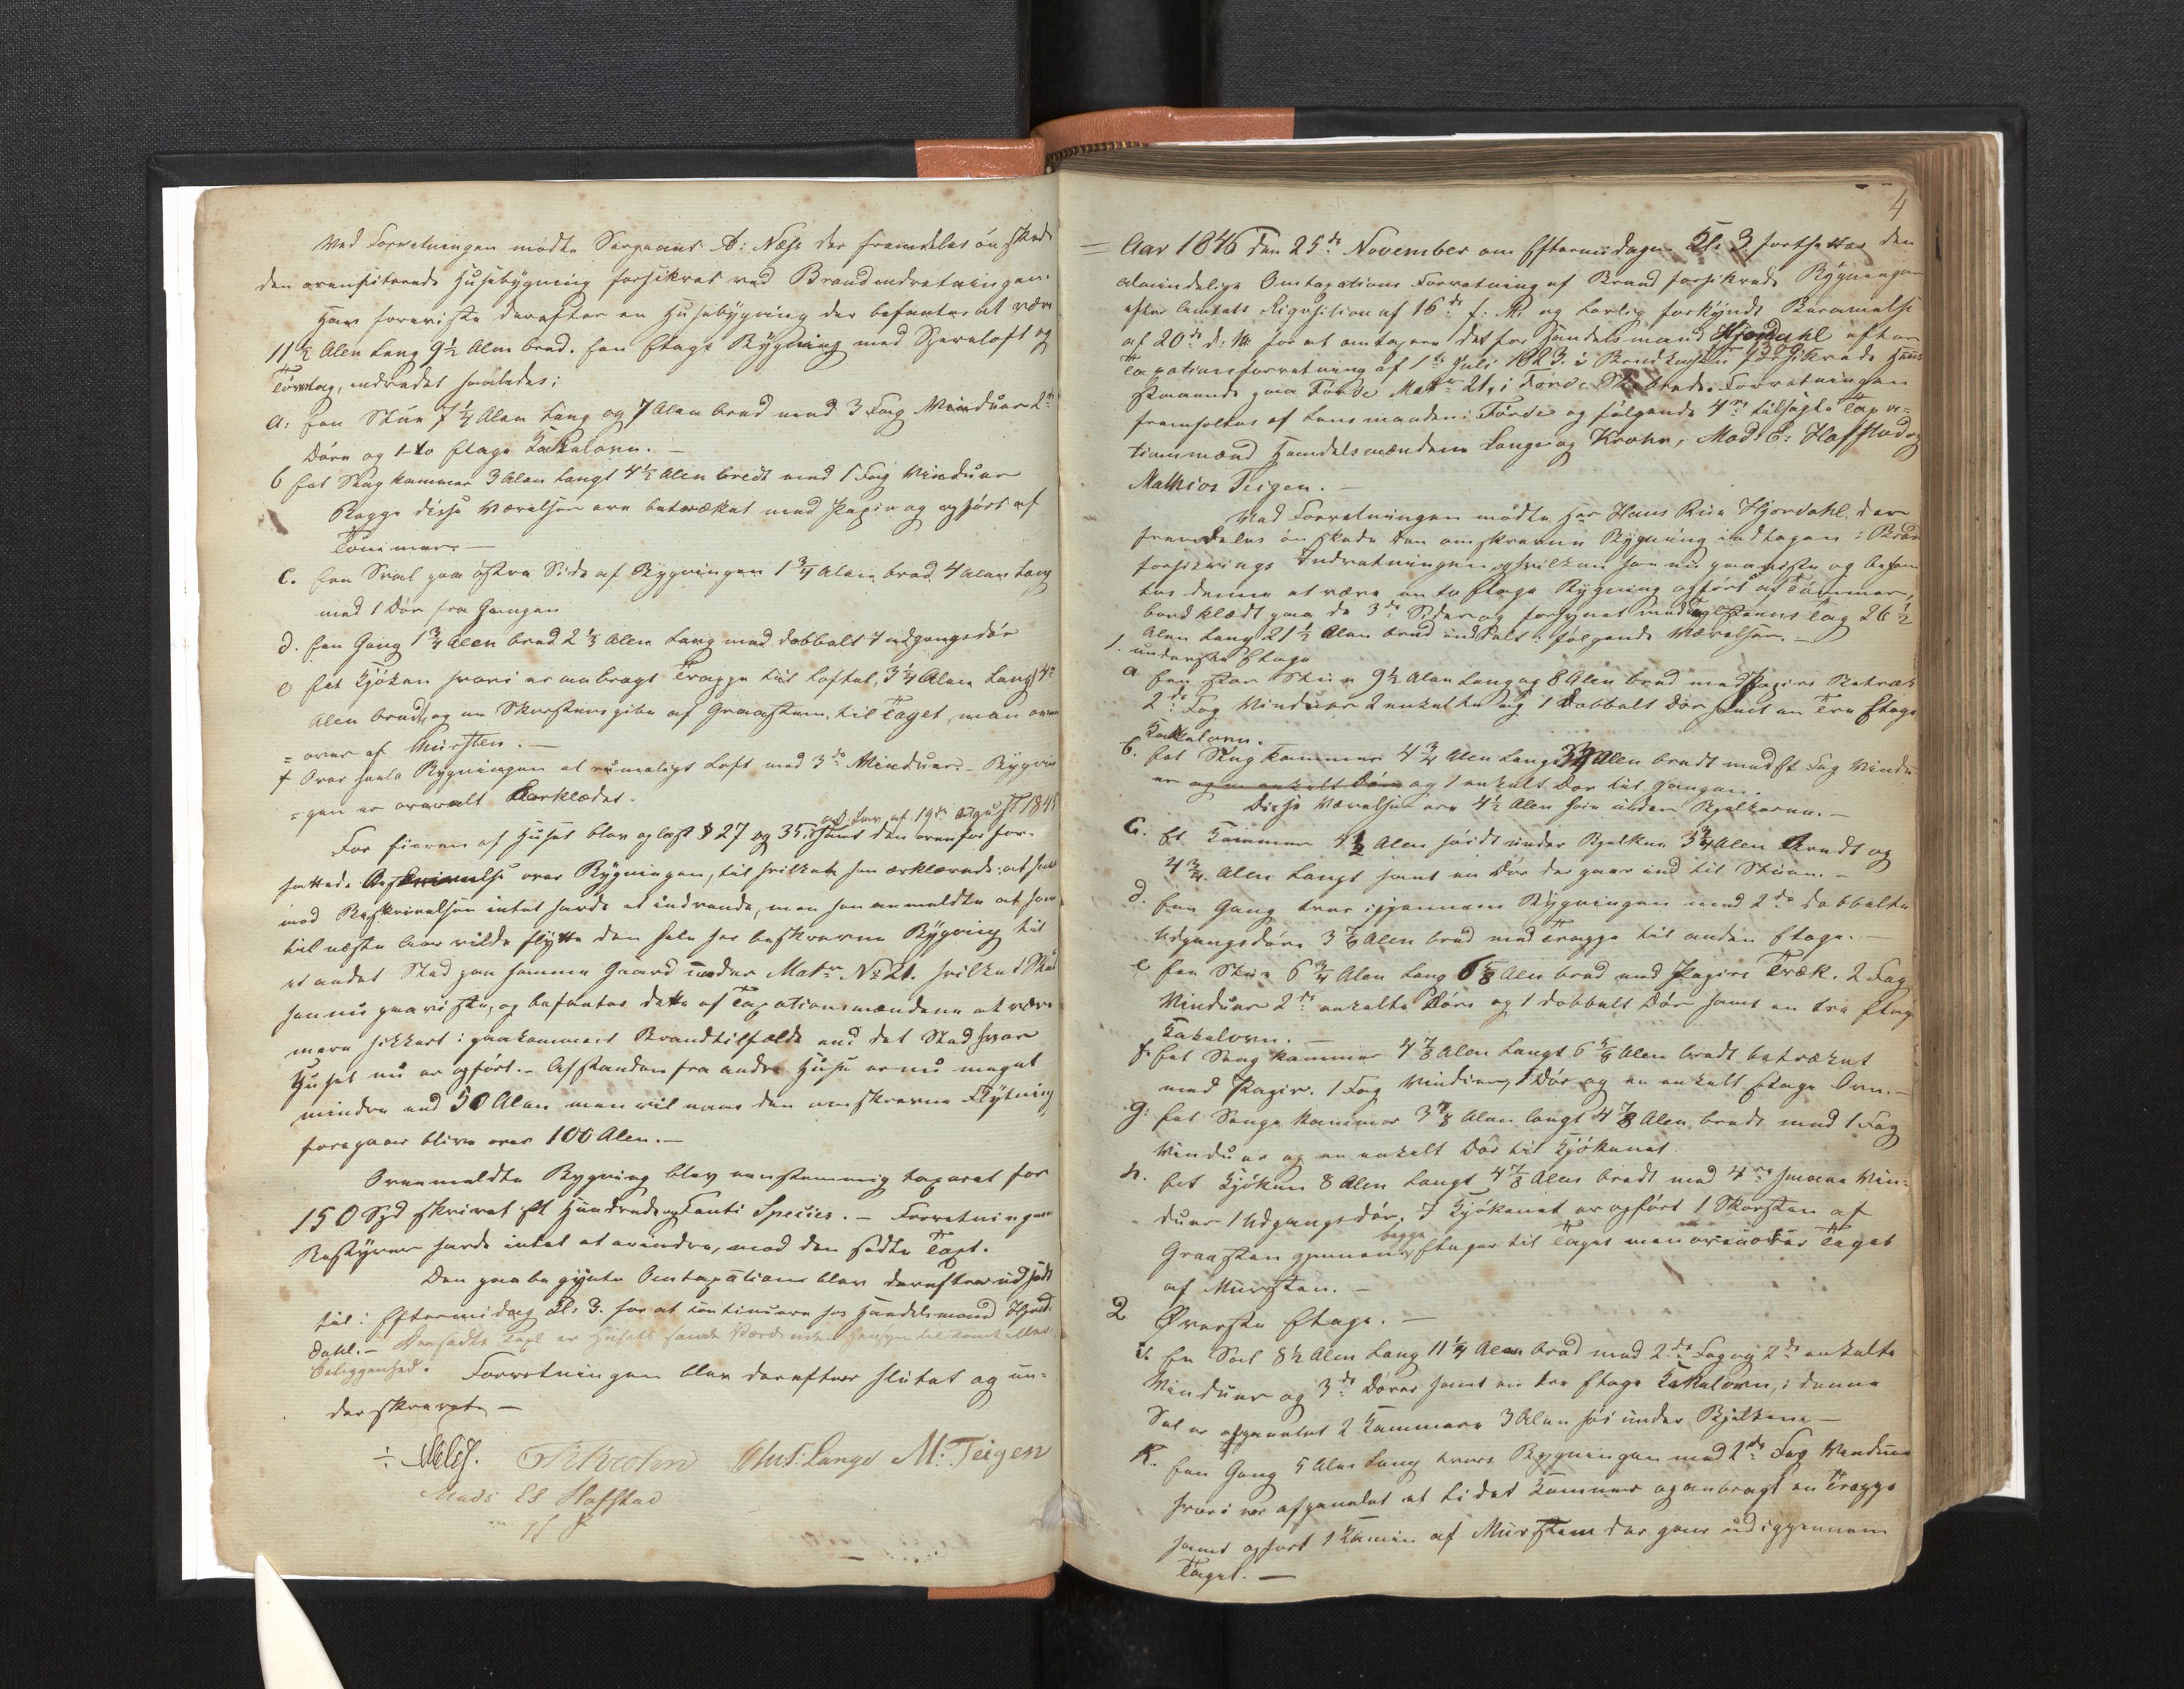 Ved Forretningen mødte Sergeant A: Næss der fremdeles ønskede
den overskrevne Huusebygning forsikret ved Brandindretningen.
Han foreviste derefter en Huusebygning der befantes at være
11½ Alen Lang 9½ Alen bred. Een Etage Bygning med Sperreloft og
Torvtag, indredet saaledes:
a: Een Stue 7¼ Alen Lang og 7 Alen bred med 3 Fag Vinduer 2de
Døre og 1 to Etage Kakelovn. —
b Eet Sengkammer 3 Alen Langt 4½ Alen bredt med 1 Fag Vinduer
Begge disse Værelser ere betrækket med Papir og opført af
Tømmer. —
c. Een Sval paa østre Side af Bygningen 1¾ Alen bred 4 Alen Lang
med 1 Dør fra Gangen
d. Een Gang 1¾ Alen bred 2⅓ Alen Lang med dobbelt Udgangsdør
e Eet Kjøken hvori er anbragt Trappe til Loftet, 3¼ Alen Langt 4
Alen bredt, og en Skorstenspibe af Graasteen, til Taget, men oven
= over af Mursten. —
f Over heele Bygningen et rumeligt Loft med 3de Vinduer. – Bygnin
= gen er overalt Bordklædet.
af Lov af 19de August 1845
For Eieren af Huset blev oplæst § 27 og 35, samt den ovenfor for-
fattede Beskrivelse over Bygningen, til hvilket han erklærede; at han
mod Beskrivelsen intet havde at indvende, men han anmeldte at han
til næste Aar vilde flytte den hele her beskrevne Bygning til
et andet Sted paa samme Gaard under Matr No 21. hvilket Sted
han nu paaviste, og befantes dette af Taxationsmændene at være
mere sikkert i paakommende Brandtilfælde end det Sted hvor
Huset nu er opført. – Afstanden fra andre Huse er nu meget
mindre end 50 Alen men vil naar den omskrevne Flytning
foregaaer blive over 100 Alen. —
Ovenmeldte Bygning blev eenstemmig taxeret for
150 Spd skrivet Et Hundrede og Femti Species. – Forretningens
Bestyrer havde intet at erindre, mod den satte Taxt.
Den paabegynte Omtaxation blev derefter udsat
til i Eftermidag Kl: 3. for at continuere hos Handelsmand Hjor-
dahl. – Den satte Taxt er Husets sande Værd uden Hensyn til
Beliggenhed. Forretningen blev derefter slutet og un-
derskrevet —
Krohn Ant: Lange M: Teigen
Mads ES Hafstad
m. f. P.
4
= Aar 1846 den 25de November om Eftermidagen Kl. 3. fortsattes den
almindelige Omtaxations Forretning af Brandforsikrede Bygninger
efter Amtets Reqvisition af 16de f. M. og lovlig forkyndt Berammelse
af 20de d. M. for at omtaxere det for Handelsmand Hjordahl efter
Taxationsforretning af 1ste Juli 1823. i Brandkassen forsikrede Huus
staaende paa Førde Matr 21, i Førde Skibrede. Forretningen
fremholtes af Lensmanden i Førde og følgende 4re tilsagte Taxa-
tionsmænd Handelsmændene Lange og Krohn, Mads E: Hafstad og
Mathias Teigen. —
Ved Forretningen mødte Hr Hans Hjordahl der
fremdeles ønskede den omskrevne Bygning indtagen i Brand
forsikrings Indretningen, hvilken han nu paaviste og befan
tes denne at være en to Etage Bygning opført af Tømmer,
bordklædt paa de 3de Sider og forsynet med Tag 26½
Alen Lang 21½ Alen bred inddelt i følgende Værelser. —
1. underste Etage
a Een stor Stue 9½ Alen Lang og 8 Alen bred med Papirs Betræk
2de Fag Vinduer 2 enkelte og 1 Dobbelt Dør samt en Tre Etage
Kakelovn.
b. Eet Sengkammer 4¾ Alen Langt Alen bredt med Et Fag Vindu
er og en enkelt Dør og 1 enkelt Dør til Gangen.
Disse Værelser ere 4½ Alen høie under Bjelkerne. —
c. Et Kammer 4½ Alen høidt under Bjelken 3¾ Alen Bredt og
4¾. Alen Langt samt en Dør der gaar ind til Stuen. —
d. Een Gang tvers igjennem Bygningen med 2de dobbelte
Udgangsdøre 3⅞ Alen bred med Trappe til anden Etage. —
e Een Stue 6¾ Alen Lang 6⅝ Alen bred med Papirs Træk. 2 Fag
Vinduer 2de enkelte Døre og 1 dobbelt Dør samt en tre Etag
Kakelovn. —
f. Eet Sengkammer 4⅞ Alen Langt 6 Alen bredt betrækket
med Papir. 1 Fag Vinduer, 1 Dør og en enkelt Etage Ovn. —
g: Eet Senge Kammer 3⅞ Alen langt 4⅞ Alen bredt med 1 Fag
Vinduer og en enkelt Dør til Kjøkenet.
h. Eet Kjøken 8 Alen Langt 4⅞ Alen bredt med 4re smaae Vin-
duer 1 Udgangsdør. I Kjøkenet er opført 1 Skorsten af
Graasten gjennem begge Etager til Taget men ovenover Taget
af Mursten. —
2 Øverste Etage. —
i. En Sal 8½ Alen Lang 11¼ Alen bred med 2de Fag og 2de enkelte
Vinduer og 3de Dører samt en tre Etage Kakelovn, i denne
Sal er afpanelet 2 Kammere 3 Alen høi under Bjelkene —
K. Een Gang 5 Alen Lang tvers Bygningen med 2de Fag Vinduer
hvori er afpanelet et lidet Kammer og anbragt en Trappe
samt opført 1 Kamin af Mursten der gaar ud igjennem
Taget. —